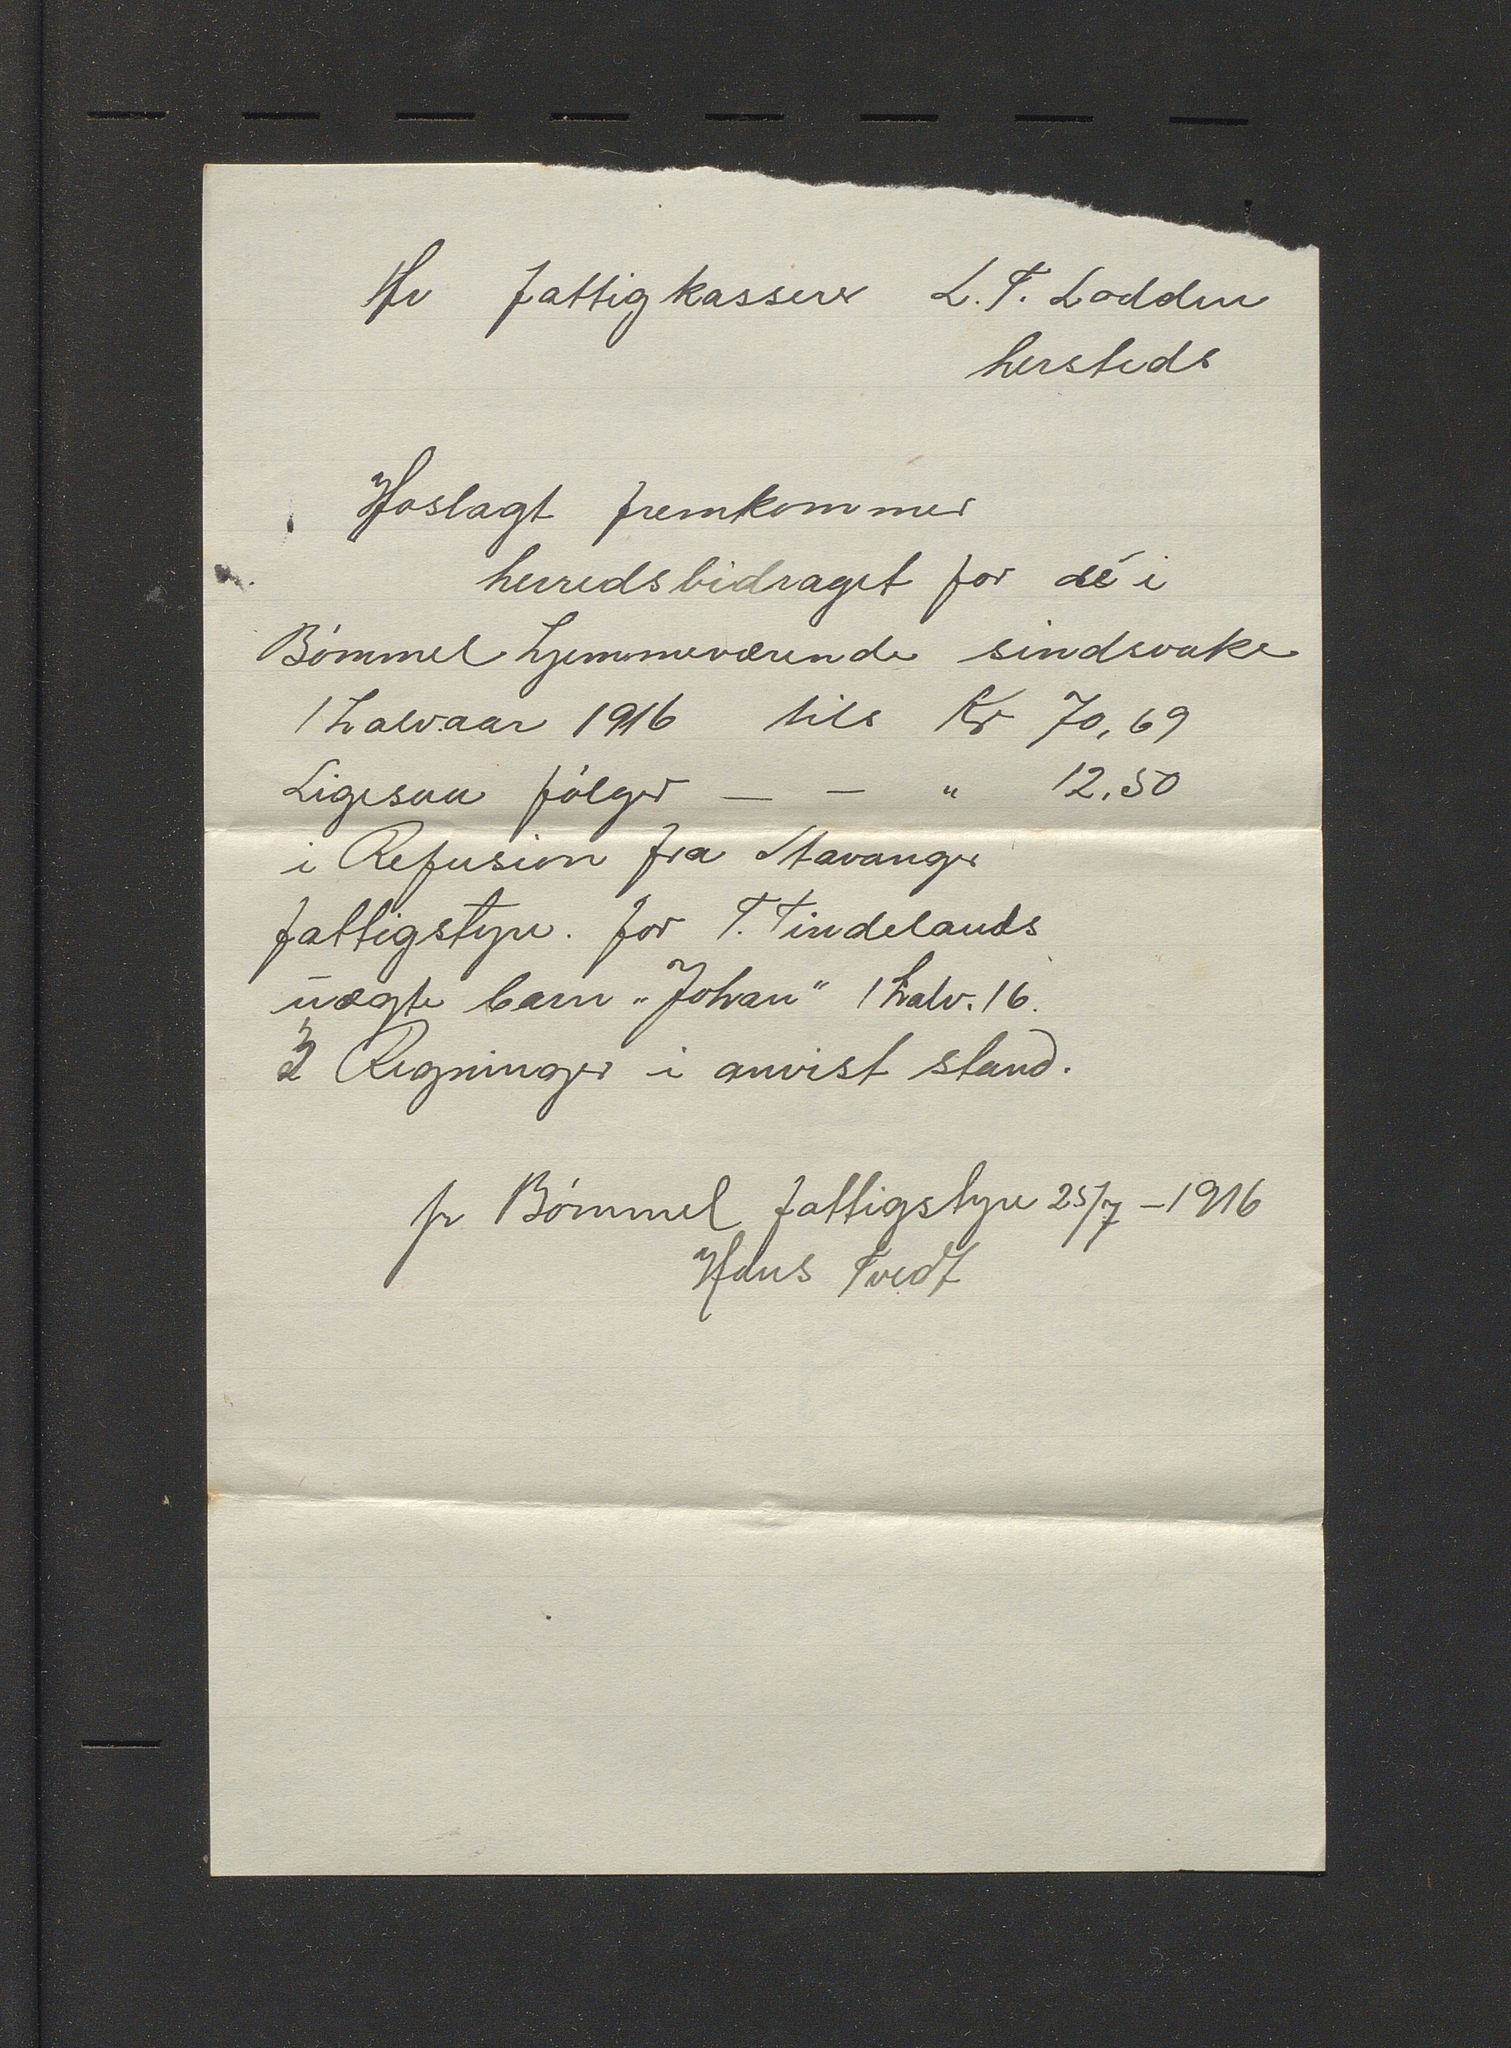 Hr fattigkasserer L. T. Lodden
hersteds
Hoslagt fremkommer
herredsbidraget for de i
Bömmel hjemmeværende sindsvake
1 halvaar 1916 tils Kr 70,69
Ligesaa følger — — " 12.50
i Refusion fra Stavanger
fattigstyre. for T. Tindelands
uægte barn „Johan" 1 halv. 16.
Regninger i anvist stand.
pr Bømmel fattigstyre 25/7 – 1916
Hans Tvedt